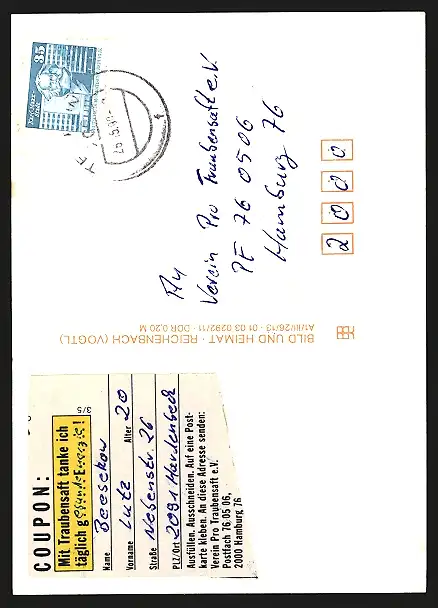 35
26.5.90
An
Verein Pro Traubensaft e.V.
PF 76 05 06
Hamburg 76
2000
BILD UND HEIMAT · REICHENBACH (VOGTL)
A1/III/26/13 · 01 03 0292/11 · DDR 0,20 M
COUPON:
Mit Traubensaft tanke ich
täglich gesunde Energie!
3/5
Beeskow
Name
Lutz
20
Vorname
Alter
Nebenstr. 26
Straße
2091 Mardenbeck
PLZ/Ort
Ausfüllen. Ausschneiden. Auf eine Post-
karte kleben. An diese Adresse senden:
Verein Pro Traubensaft e.V.
Postfach 76 05 06,
2000 Hamburg 76